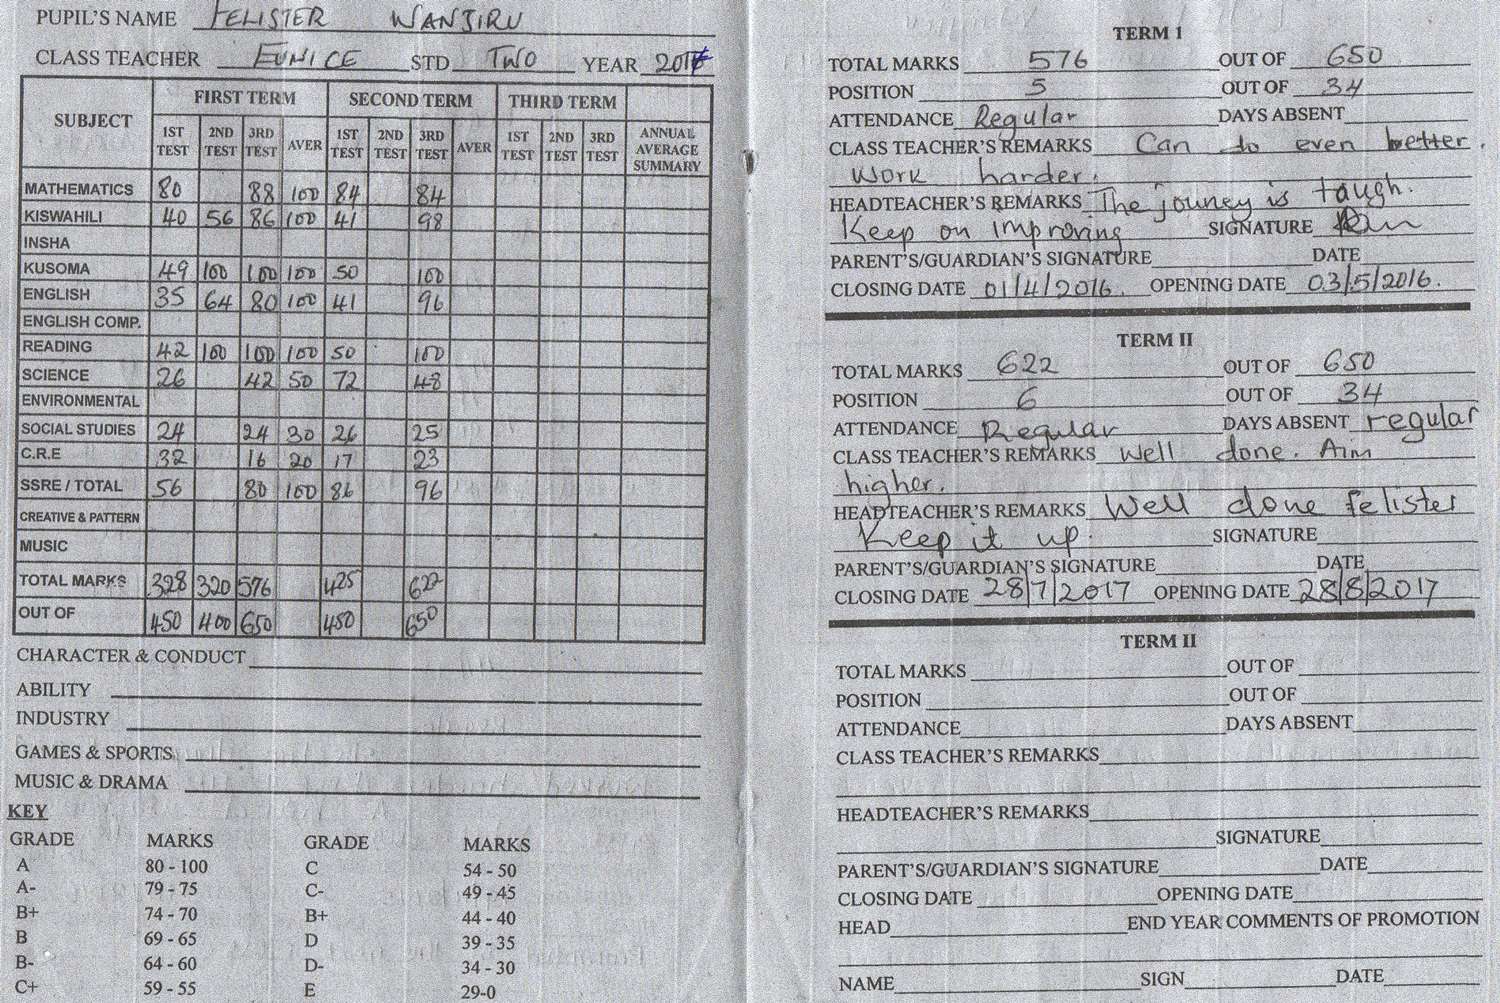 PUPIL'S NAME FELISTER WANJIRU
CLASS TEACHER EUNICE STD TWO YEAR 2017
SUBJECT FIRST TERM SECOND TERM THIRD TERM
1ST TEST 2ND TEST 3RD TEST AVER 1ST TEST 2ND TEST 3RD TEST AVER 1ST TEST 2ND TEST 3RD TEST ANNUAL AVERAGE SUMMARY
MATHEMATICS 80 88 100 84 84
KISWAHILI 40 56 86 100 41 98
INSHA
KUSOMA 49 100 100 100 50 100
ENGLISH 35 64 80 100 41 96
ENGLISH COMP.
READING 42 100 100 100 50 100
SCIENCE 26 42 50 72 48
ENVIRONMENTAL
SOCIAL STUDIES 24 24 30 26 25
C.R.E 32 16 20 17 23
SSRE / TOTAL 56 80 100 86 96
CREATIVE & PATTERN
MUSIC
TOTAL MARKS 328 320 576 425 622
OUT OF 450 400 650 450 650
CHARACTER & CONDUCT
ABILITY
INDUSTRY
GAMES & SPORTS
MUSIC & DRAMA
KEY
GRADE MARKS GRADE MARKS
A 80 - 100 C 54 - 50
A- 79 - 75 C- 49 - 45
B+ 74 - 70 B+ 44 - 40
B 69 - 65 D 39 - 35
B- 64 - 60 D- 34 - 30
C+ 59 - 55 E 29-0
TERM I
TOTAL MARKS 576 OUT OF 650
POSITION 5 OUT OF 34
ATTENDANCE Regular DAYS ABSENT
CLASS TEACHER'S REMARKS Can do even better.
Work harder.
HEADTEACHER'S REMARKS The jouney is taugh.
Keep on improving SIGNATURE
PARENT'S/GUARDIAN'S SIGNATURE DATE
CLOSING DATE 01/4/2016. OPENING DATE 03/5/2016.
TERM II
TOTAL MARKS 622 OUT OF 650
POSITION 6 OUT OF 34
ATTENDANCE Regular DAYS ABSENT regular
CLASS TEACHER'S REMARKS Well done. Aim
higher.
HEADTEACHER'S REMARKS Well done Felister
Keep it up. SIGNATURE
PARENT'S/GUARDIAN'S SIGNATURE DATE
CLOSING DATE 28/7/2017 OPENING DATE 28/8/2017
TERM II
TOTAL MARKS OUT OF
POSITION OUT OF
ATTENDANCE DAYS ABSENT
CLASS TEACHER'S REMARKS
HEADTEACHER'S REMARKS
SIGNATURE
PARENT'S/GUARDIAN'S SIGNATURE DATE
CLOSING DATE OPENING DATE
HEAD END YEAR COMMENTS OF PROMOTION
NAME SIGN DATE